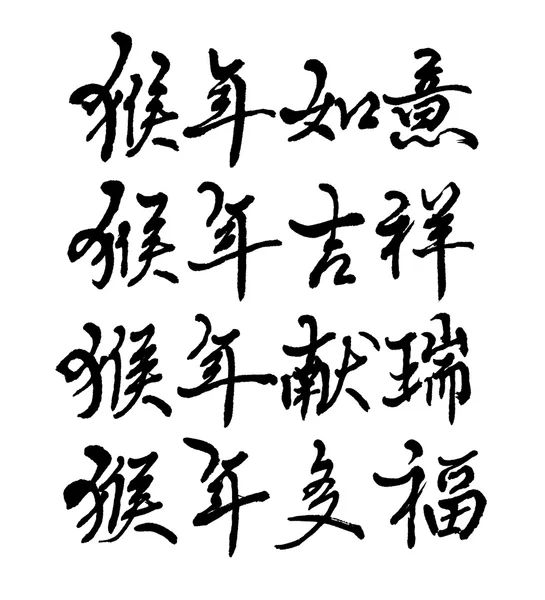 猴年如意
猴年吉祥
猴年献瑞
猴年多福